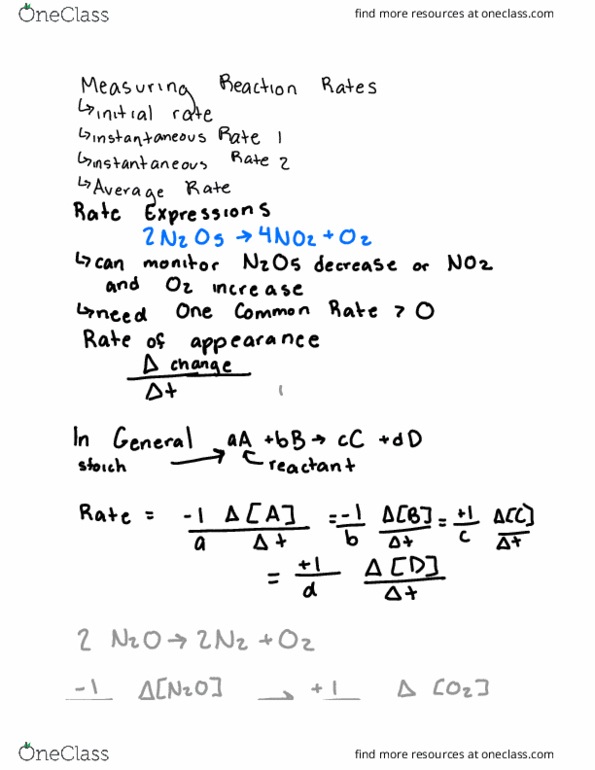 OneClass
find more resources at oneclass.com
Measuring Reaction Rates
↳initial rate
↳instantaneous Rate 1
↳instantaneous Rate 2
↳Average Rate
Rate Expressions
2N2O5 → 4NO2 + O2
↳can monitor N2O5 decrease or NO2
and O2 increase
↳need One Common Rate > O
Rate of appearance
Δ change
Δt
In General aA +bB → cC +dD
stoich → reactant
Rate = -1/a Δ[A]/Δt = -1/b Δ[B]/Δt = +1/c Δ[C]/Δt
= +1/d Δ[D]/Δt
2 N2O → 2N2 + O2
-1 Δ[N2O] → +1 Δ [O2]
OneClass
find more resources at oneclass.com